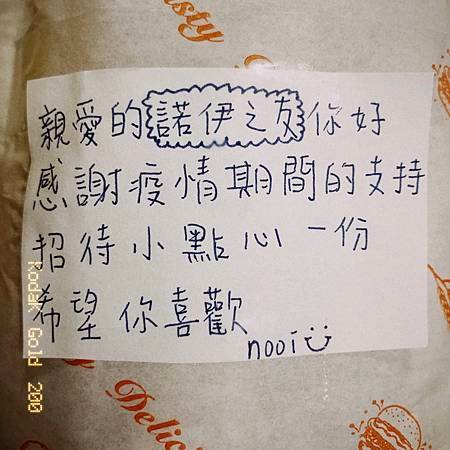 asty
親愛的諾伊之友你好
感謝疫情期間的支持
招待小點心一份
希望你喜歡
nooi
Kodak Gold 200
Delic